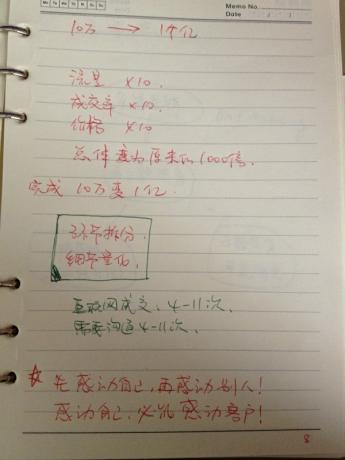 Mo Tu We Th Fr Sa Su
Memo No.
Date / /
10万 → 1个亿
流量 ×10.
成交率 ×10.
价格 ×10
总体变为原来的1000倍.
完成 10万变1亿.
环节拆分.
细节量化.
互联网成交、4-11次.
需要沟通4-11次.
☆ 先感动自己,再感动别人!
感动自己,必能感动客户!
8